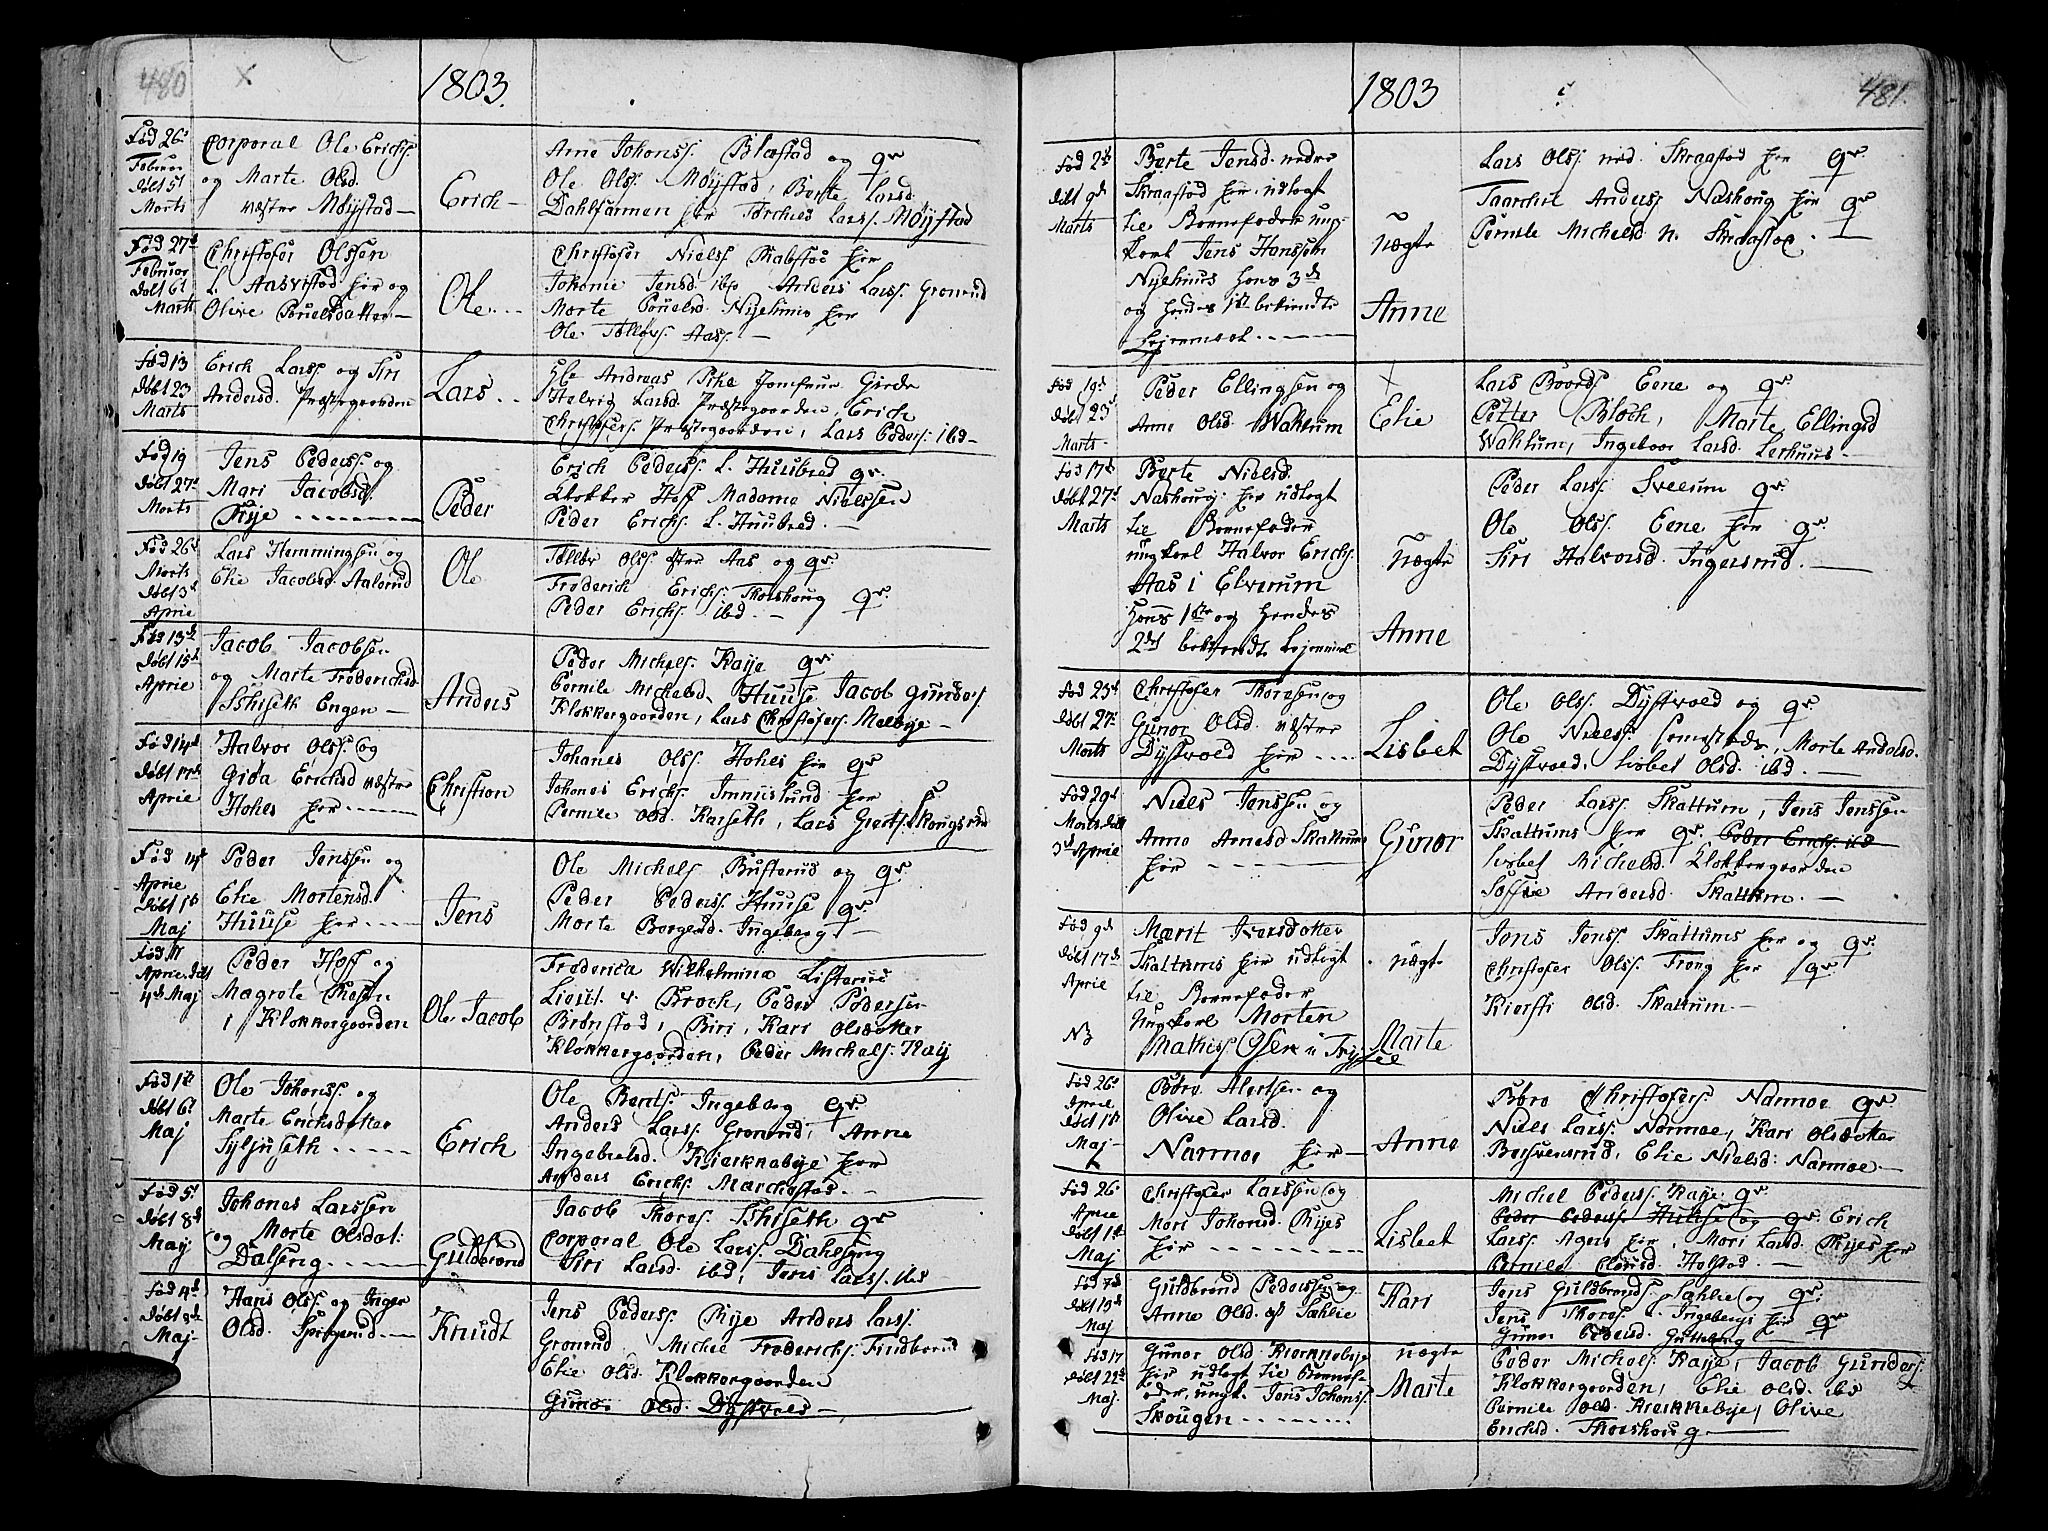 480
1803.
Fød 26
Februar
døbt 5t
Marts
Corporal Ole Erichs.
og Marte Olsd.
væster Møystad
Erich
Arne Johanss. Blæstad og qv.
Ole Olss. Møystad, Berte Larsd.
Dahlfarmen her Torches Larss. Møystad
Fød 27d
Februar
døbt 6t
Marts
Christofer Olssen
l. Aasvistad her og
Olive Pouelsdatter
Ole
Christofer Nielss. Rabstad her
Johanne Jensd. ibd Anders Larss. Grønrud
Marte Pouelsd. Nyehuus her
Ole Tølløvs. Aas
Fød 13
døbt 23
Marts
Erich Larss. og Siri
Andersd. Præstegaarden
Lars
Hr. Andreas Pihe Jomfrue Giørde
Helvig Larsd. Præstegaarden, Erich
Christofers. Præstegaarden, Lars Peders. ibd
Fød 19
døbt 27d
Marts
Jens Pederss. og
Mari Jacobsd.
Rye
Peder
Erich Pederss. l. Huusbred qv.
Klokker Hoff Madame Nielssen
Peder Erichs. l. Huusbred.
Fød 26d
Marts
døbt 3d
Aprie
Lars Hemmingsen og
Elie Jacobsd. Aalerud
Ole
Tølløv Olss. øster Aas og qv.
Frederich Erichs. Thorshoug qv.
Peder Erichs. ibd.
Fød 13d
døbt 15d
Aprie
Jacob Jacobsen
og Marte Frederichsd.
Ishiseth Engen
Anders
Peder Michels. Kaye qv.
Pernile Michelsd. Huuse Jacob Gunders.
Klokkergaarden, Lars Christofers. Melbye
Fød 14d
døbt 17d
Aprie
Halvor Olss. og
Gida Erichsd væster
Hohes her
Christian
Johanes Olss. Hohes her qv.
Johanes Erichs. Imnislund her
Pernile Olsd. Karseth, Lars Giertss. Skougsrud
Fød 14d
Aprie
døbt 1t
Maj
Peder Jenssen og
Elie Mortensd.
Huuse her
Jens
Ole Michels. Bufterud og qv.
Peder Pederss. Huuse qv.
Marte Borgersd. Ingeberg
Fød 11
Aprie døbt
4d Maj
Peder Hoff og
Magrete Olsen
i Klokkergaarden
Ole Jacob
Frederica Wilhelmina
Lieut. v. Broch, Peder Pedersen
Brønstad, Biri, Kari Olsdatter
Klokkergaarden, Peder Michels. Kaye
Fød 1t
døbt 6t
Maj
Ole Johanss. og
Marte Erichsdatter
Syljuseth
Erich
Ole Bentss. Ingeberg qv.
Anders Larss. Grønrud, Anne
Ingebrelsd. Kierkebye her
Anders Erichs. Marchestad.
Fød 5t
døbt 8d
Maj
Johanes Larssen
og Marte Olsdat:
Dalseng
Guldbrand
Jacob Thores. Ishiseth qv.
Corporal Ole Larss. Dahlseng
Siri Larsd. ibd, Jens Larss. ibd
Fød 4d
døbt 8d
Maj
Hans Olss. og Inger
Olsd. Spigerud
Knudt
Jens Pederss. Rye Anders Larss.
Grønrud Michel Frederichs. Findborud
Elie Olsd. Klokkergaarden
Gunor Olsd. Dystvold
481.
1803
Fød 2d
døbt 9d
Marts
Berte Jensd. nedre
Skraastad her, udlagt
til Barnefader ung-
karl Jens Hanssen
Nyehuus hans 3d
og hendes 1st bekiendte
Lejermaal
nægte
Anne
Lars Olss. ned. Skraastad her qv.
Taarchil Anderss. Nashoug her qv.
Pernile Michelsd. n. Skraastad.
Fød 19d
døbt 23d
Marts
Peder Ellingsen og
Anne Olsd. Wahlum
Elie
Lars Boards. Eene og qv.
Petter Bloch, Marte Ellingsd
Wahlum, Ingeboor Larsd. Lerhuus
Fød 17d
døbt 27d
Marts
Berte Nielsd.
Nashoug her udlagt
til Barnefader
ungkarl Halvor Erichs.
Aas i Elverum
hans 1ste og hendes
2det bekiendte Lejermaal
Nægte
Anne
Peder Larss. Sveeum qv.
Ole Olss. Eene her qv.
Siri Halvorsd. Ingersrud.
Fød 25d
døbt 27
Marts
Christofer Thoresen og
Gunor Olsd. væster
Dystvold her
Lisbet
Ole Olss. Dystvold og qv.
Ole Nielss. Semestads, Marte Andersd.
Dystvold, Lisbet Olsd. ibd.
Fød 29d
Marts døbt
3d Aprie
Niels Jenssen og
Anne Arnesd. Skattum
her
Gunor
Peder Larss. Skattum, Jens Jenssen
Skattums her qv. Peder Erichs. ibd
Lisbet Michelsd. Klokkergaarden
Soffie Andersd. Skattum.
Fød 9d
døbt 17d
Aprie
NB
Marit Iversdatter
Skattums her udlagt
til Barnefader
Ungkarl Morten
Mathiss. Osen i Trysild
nægte
Marte
Jens Jenss. Skattums her og qv.
Christofer Olss. Frang her qv.
Kiersti Olsd. Skattum
Fød 26d
Aprie
døbt 1t
Maj
Børe Alertsen og
Olive Larsd.
Narmoe her
Anne
Børe Christofers. Narmoe qv.
Niels Larss. Narmoe, Kari Olsdatter
Borsvensrud, Elie Nielsd. Narmoe.
Fød 26
Aprie
døbt 1t
Maj
Christofer Larssen og
Mari Johansd. Ryes
her
Lisbet
Michel Pederss. Kaye qv.
Peder Pederss. Huuse og qv. Erich
Larss. Ager her, Mari Larsd. Ryes her
Pernile Olausd. Holstad.
Fød 7d
døbt 19d
Maj
Guldbrand Pederssen og
Anne Olsd. af Sæhlie
Kari
Jens Guldbrands. Sæhlie og qv.
Jens Thores. l. Ingebergs her qv.
Gunor Pedersd. Gutteberg
Fød 17
døbt 22d
Maj
Gunor Olsd. Kierkebye
her udlagt til Barnef-
ader, ungk. Jens Johans.
Skougen
nægte
Marte
Peder Michels. Kaye, Jacob Gunders.
Klokkergaarden, Elie Olsd. ibd
Pernile Olsd. Kierkkebye, Olive
Erichsd. Thorshoug